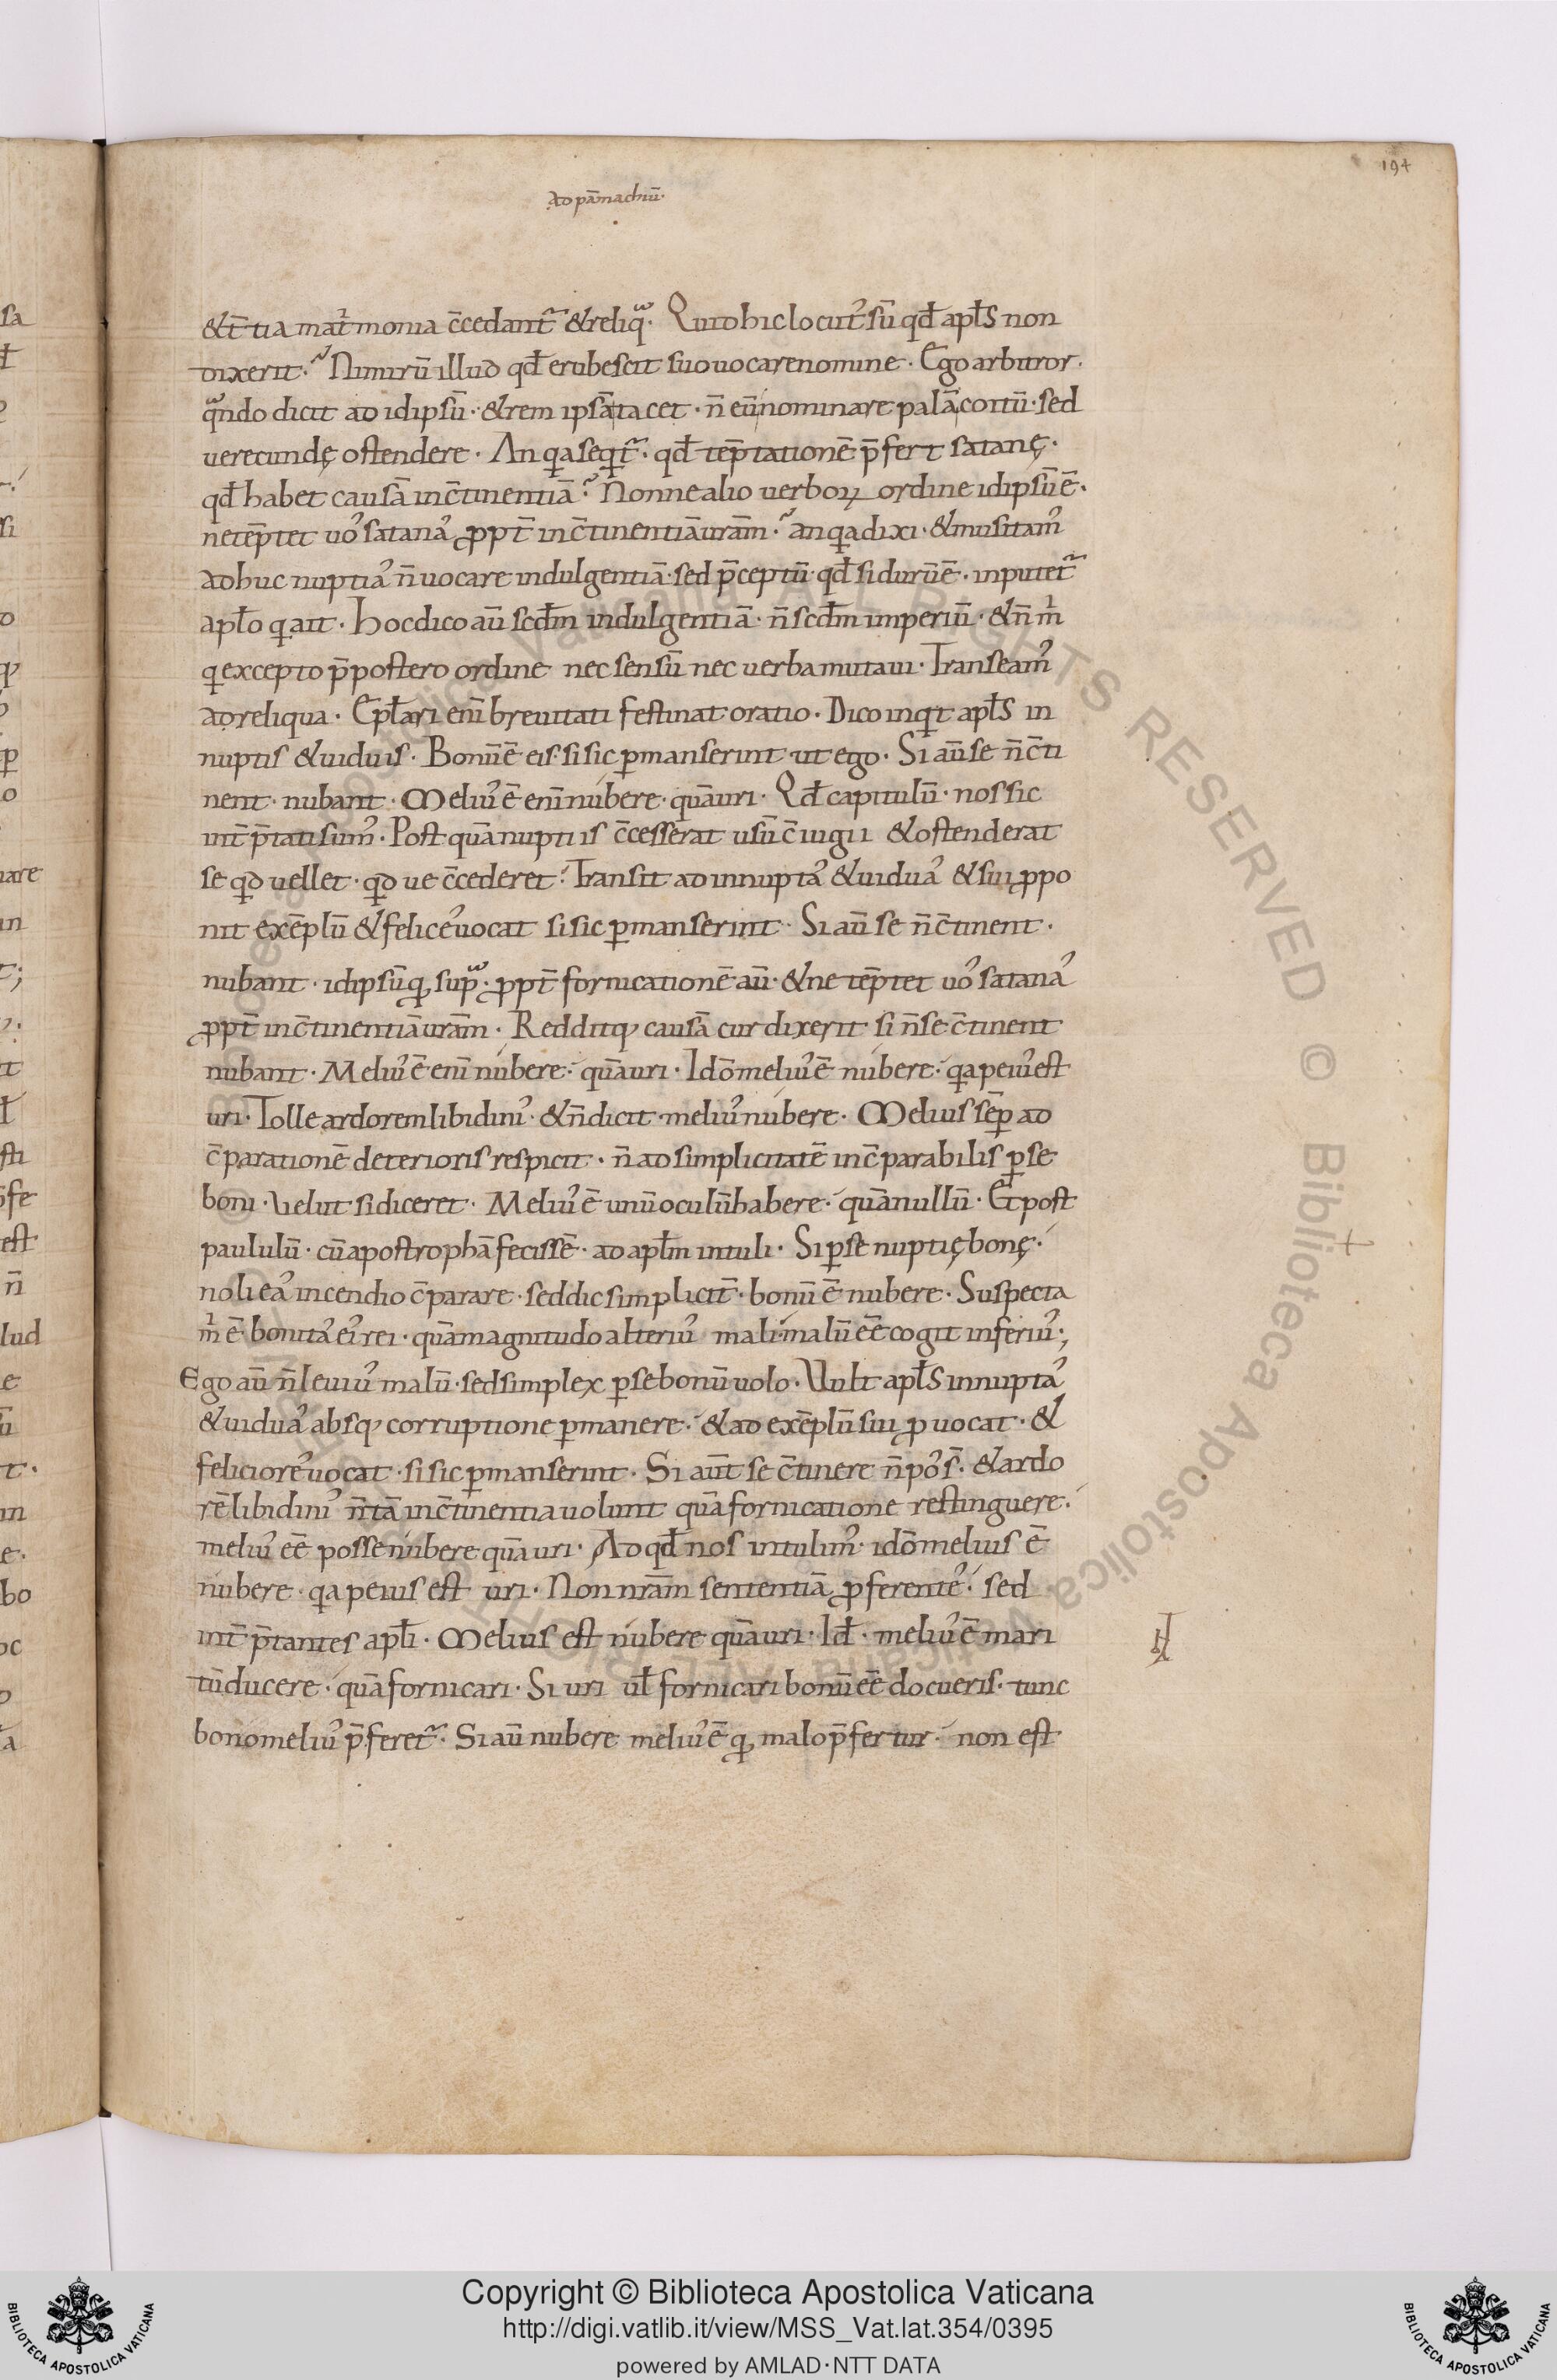 194
ad pāmachiū·
&t̄tia mat̾monia c̄cedant᷑ &reliqᷓ· Quid hic locut᾽ sū qđ apłs non
dixerit·᷉ Nimirū illud qđ erubescit suo uocare nomine· Ego arbitror·
qᷓndo dicit ad idipsū· & rem ipsā tacet· n̄ eū nominare palā coitū· sed
uerecundę ostendere· An qa seqt᷑· qđ tēptationē p̄fert satanę·
qđ habet causā inc̄tinentiā·᷉ Nonne alio uerboꝝ ordine idipsū ē·
ne tēptet uo᾽ satana᾽ ꝓpt̄ inc̄tinentiā urām·᷉ an qa dixi· & musitam᾽
adhuc nuptia᾽ n̄ uocare indulgentiā· sed p̄ceptū· qđ si durū ē· inputet᷑
apło q ait· Hoc dico aū scđm indulgentiā· n̄ scđm imperiū· & n̄ m̊
q excepto p̄postero ordine nec sensū nec uerba mutaui· Transeam᾽
ad reliqua· Epłari eni breuitati festinat oratio· Dico inqt apłs in
nuptis & uiduis· Bonū ē eis· si sic ꝑmanserint ut ego· Si aū se n̄ c̄ti
nent· nubant· Meliu᾽ ē eni nubere· quā uri· Qđ capitulū· nos sic
int̄p̄tati sum᾽· Post quā nuptiis c̄cesserat usū c̄iugii & ostenderat
se qd uellet· qd ue c̄cederet·᷉ Transit ad innupta᾽ & uidua᾽ & sui ꝓpo
nit exēplū & felice᾽ uocat si sic ꝑmanserint· Si aū se n̄ c̄tinent·
nubant· idipsū q supᷓ· ꝓpt̄ fornicationē aū· & ne tēptet uo᾽ satana᾽
ꝓpt̄ inc̄tinentiā urām· Redditq; causā cur dixerit si n̄ se c̄tinent
nubant· Meliu᾽ ē eni nubere· quā uri· Idō meliu᾽ ē nubere· qa peiu᾽ est
uri· Tolle ardorem libidini᾽· & n̄ dicit· meliu᾽ nubere· Melius sēꝑ ad
c̄parationē deterioris respicit· n̄ ad simplicitatē inc̄parabilis ꝑ se
boni· Velut si diceret· Meliu᾽ ē unū oculū habere· quā nullū· Et post
paululū· cū apostrophā fecissē· ad apłm intuli· Si ꝑ se nuptię bonę·
noli ea᾽ incendio c̄parare· sed dic simplicit̄· bonū ē nubere· Suspecta
m̊ ē bonita᾽ ei᾽ rei· quā magnitudo alteriu᾽ mali· malū eē cogit inferiu᾽;
Ego aū n̄ leuiu᾽ malū· sed simplex ꝑ se bonū uolo· Vult apłs innupta᾽
& uidua᾽ absq; corruptione ꝑmanere· & ad exēplū sui ꝓuocat· &
feliciore᾽ uocat· si sic ꝑmanserint· Si aūt se c̄tinere n̄ po᾽s̄· & ardo
rē libidini᾽ n̄ tā inc̄tinentia uolunt quā fornicatione restinguere·
meliu᾽ eē posse nubere quā uri· Ad qđ nos intulim᾽· idō melius ē
nubere· qa peius est uri· Non nrām sententiā ꝓferente᾽· sed
int̄p̄tantes apłi· Melius est nubere quā uri· Iđ· meliu᾽ ē mari
tū ducere· quā fornicari· Si uri uł fornicari bonū eē docueris· tunc
bono meliu᾽ p̄feret᷑· Si aū nubere meliu᾽ ē q malo p̄fertur· non est
Copyright © Biblioteca Apostolica Vaticana
http://digi.vatlib.it/view/MSS_Vat.lat.354/0395
powered by AMLAD·NTT DATA